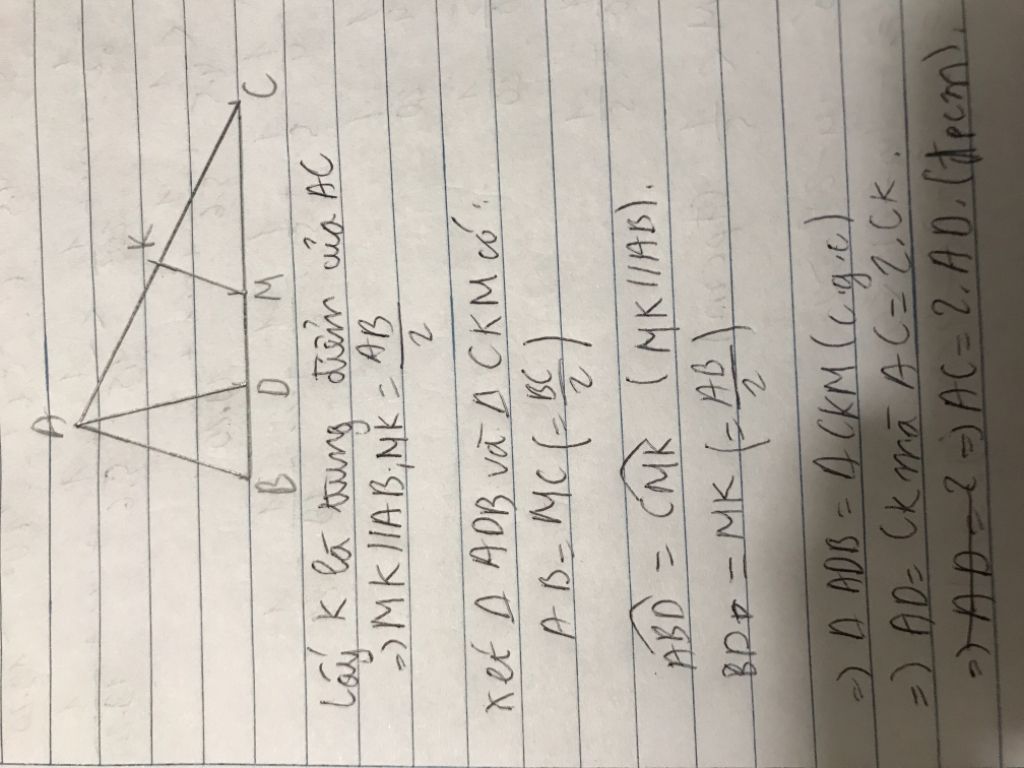 A
K
B D M C
Lấy K là trung điểm của AC
=) MK//AB; MK = AB/2
xét Δ ADB và Δ CKM có:
AB = MC (= BC/2)
ABD = CMK (MK//AB).
BD = MK (= AB/2)
=) Δ ADB = Δ CKM (c.g.c)
=) AD = CK mà AC = 2.CK.
=) AC = 2.AD. (đpcm).